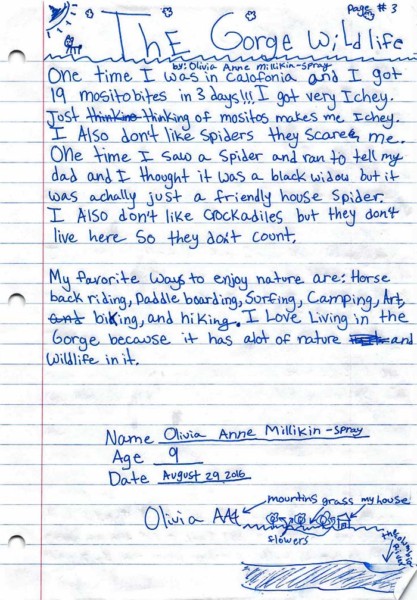 Page #3
The Gorge Wildlife
by: Olivia Anne Millikin-Spray
One time I was in Calofonia and I got
19 mositobites in 3 days!!! I got very Ichey.
Just thinking thinking of mositos makes me Ichey.
I Also don't like Spiders they Scare me.
One time I Saw a Spider and ran to tell my
dad and I thought it was a black widow but it
was achally just a friendly house Spider.
I Also don't like Crockadiles but they don't
live here So they don't count.
My favorite ways to enjoy nature are: Horse
back riding, Paddle boarding, Surfing, Camping, Art,
and biking, and hiking. I Love Living in the
Gorge because it has alot of nature and
wildlife in it.
Name Olivia Anne Millikin-Spray
Age 9
Date August 29 2016
mountins grass my house
Olivia Art
slowers
River